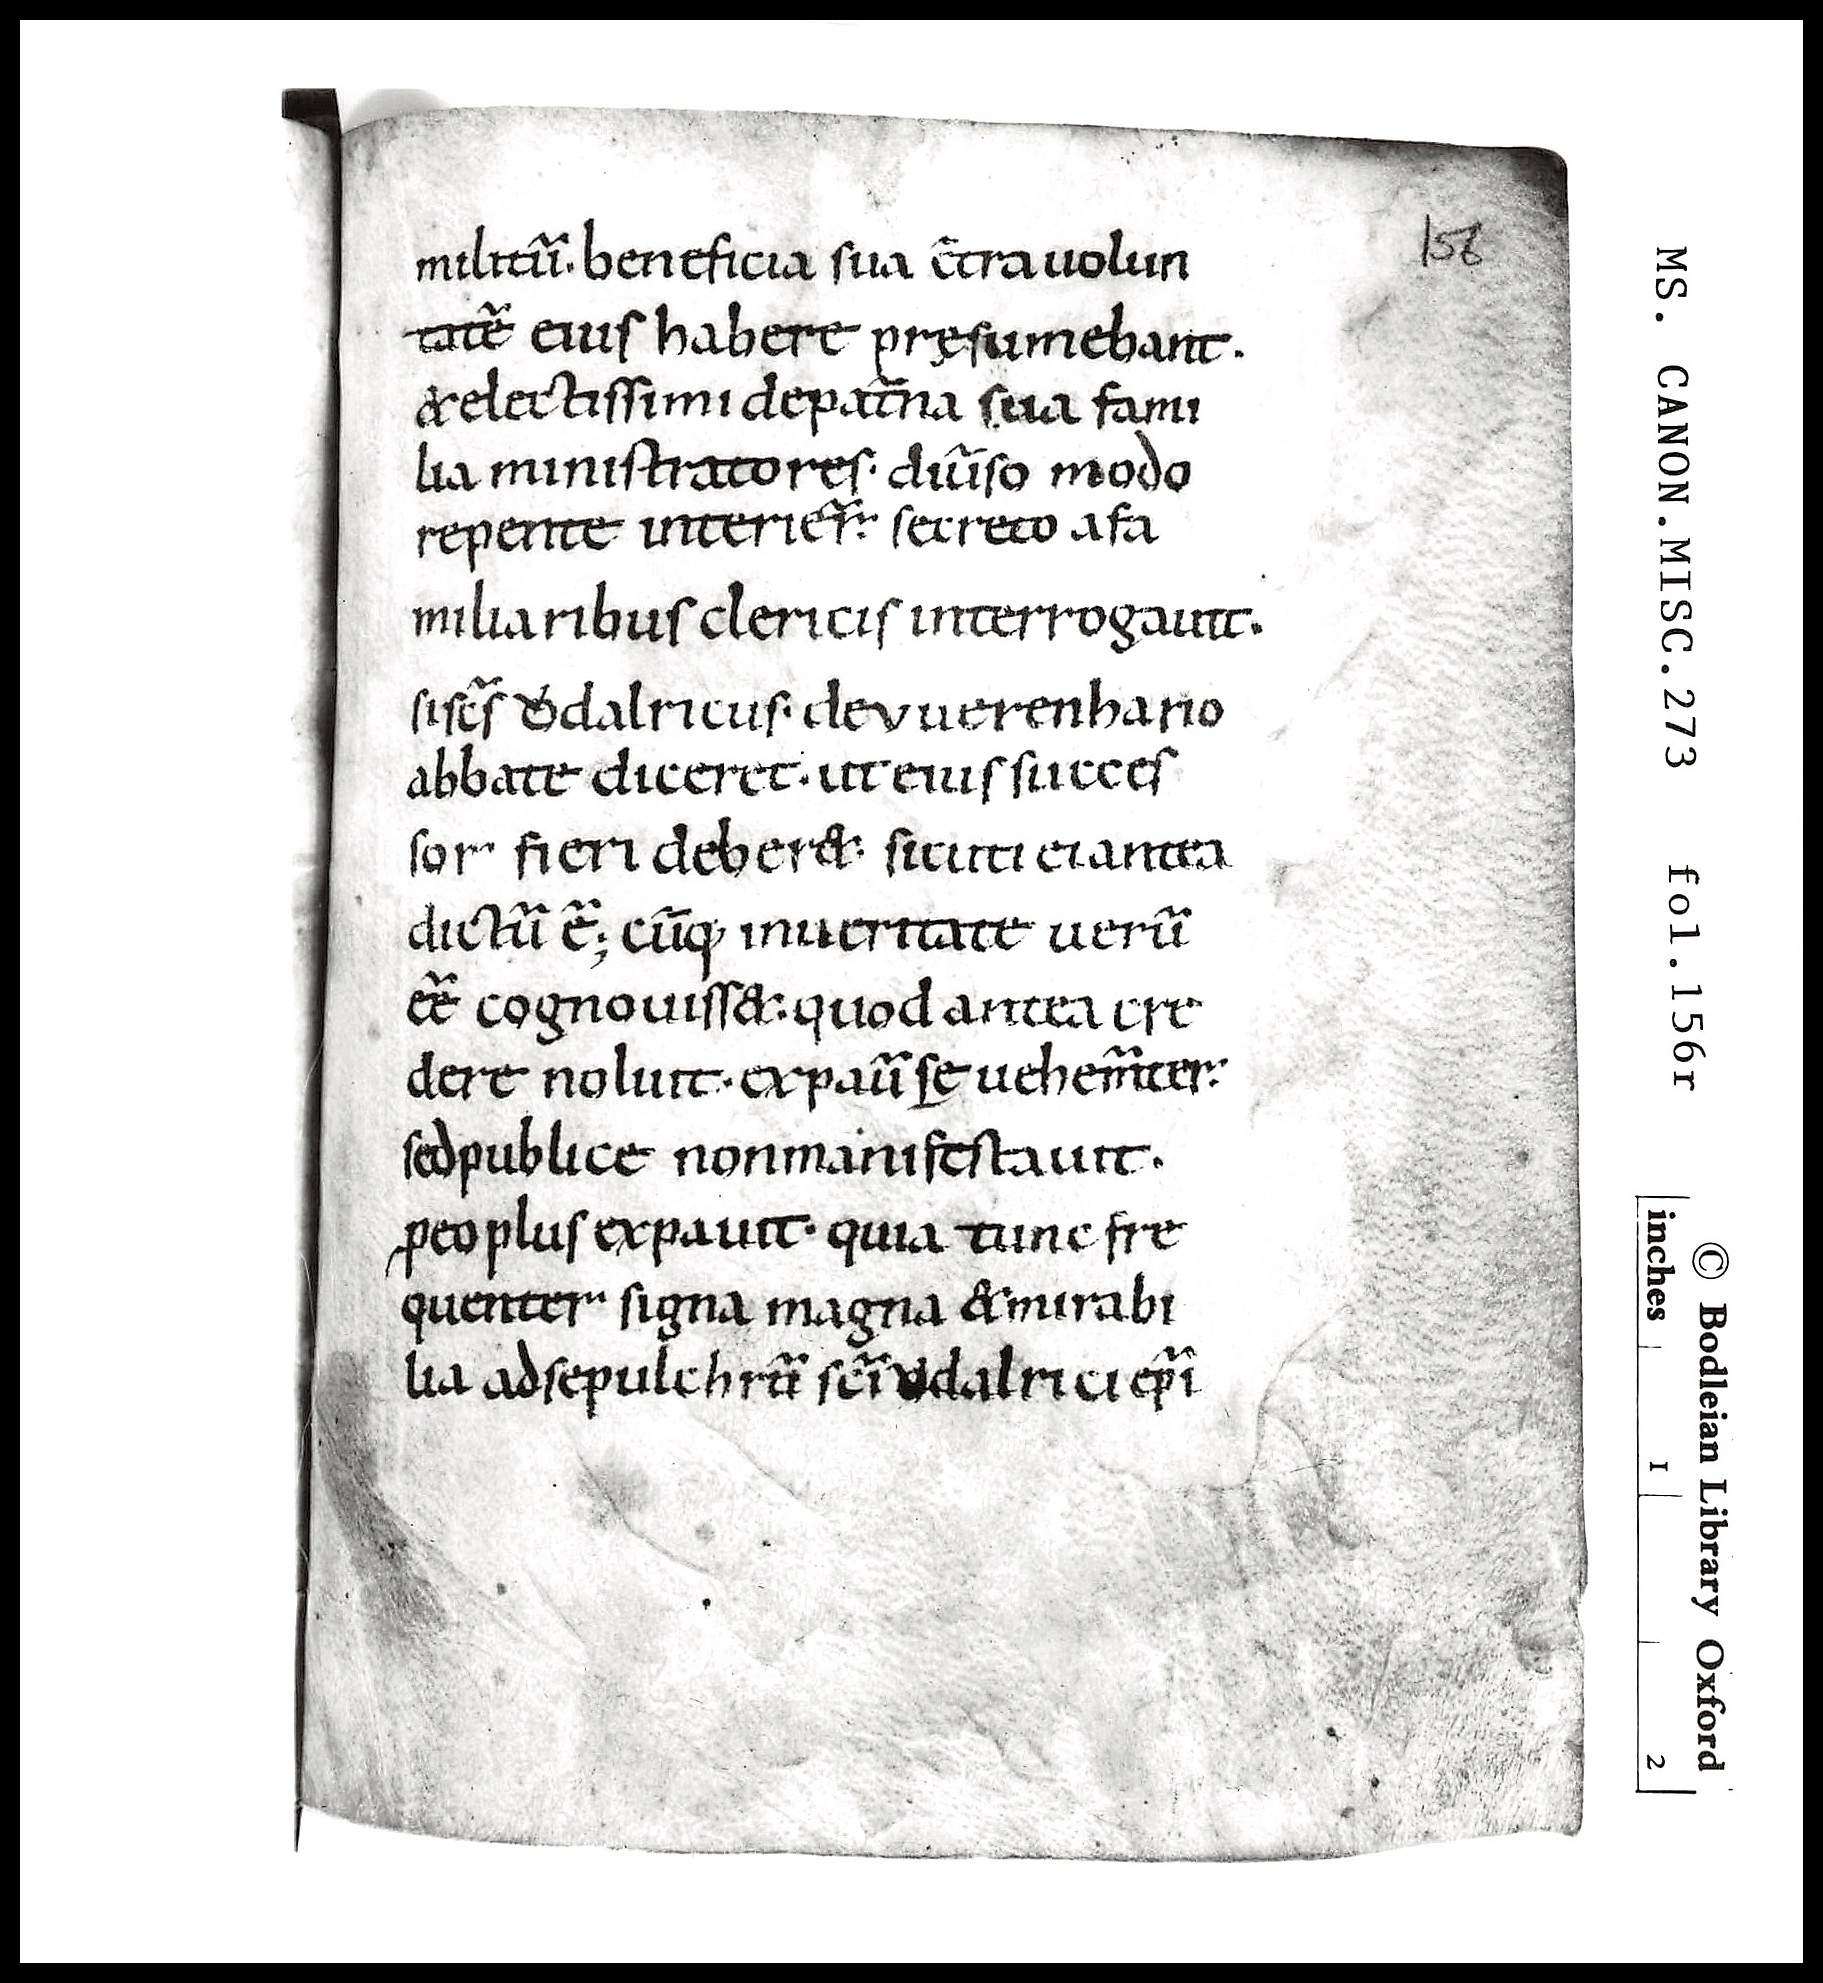 militũ. beneficia sua c̃tra uolun
tatẽ eius habere pręsumebant.
& electissimi de pat̃na sua fami
lia ministratores. diũso modo
repente interieř. secreto a fa
miliaribus clericis interrogauit.
si sc̃s Ǒdalricus. de vuerenhario
abbate diceret. ut eius succes
sor fieri deber&. sicuti ei antea
dictũ ẽ; cũq; in ueritate uerũ
eẽ cognouiss&. quod antea cre
dere noluit. expaũ se uehem̃ter.
sed publice non manifestauit.
ꝓeo plus expauit. quia tunc fre
quenter signa magna & mirabi
lia ad sepulchrũ sc̃i Vdalrici ep̃i
156
MS. CANON.MISC.273 fol.156r
© Bodleian Library Oxford
inches 1 2